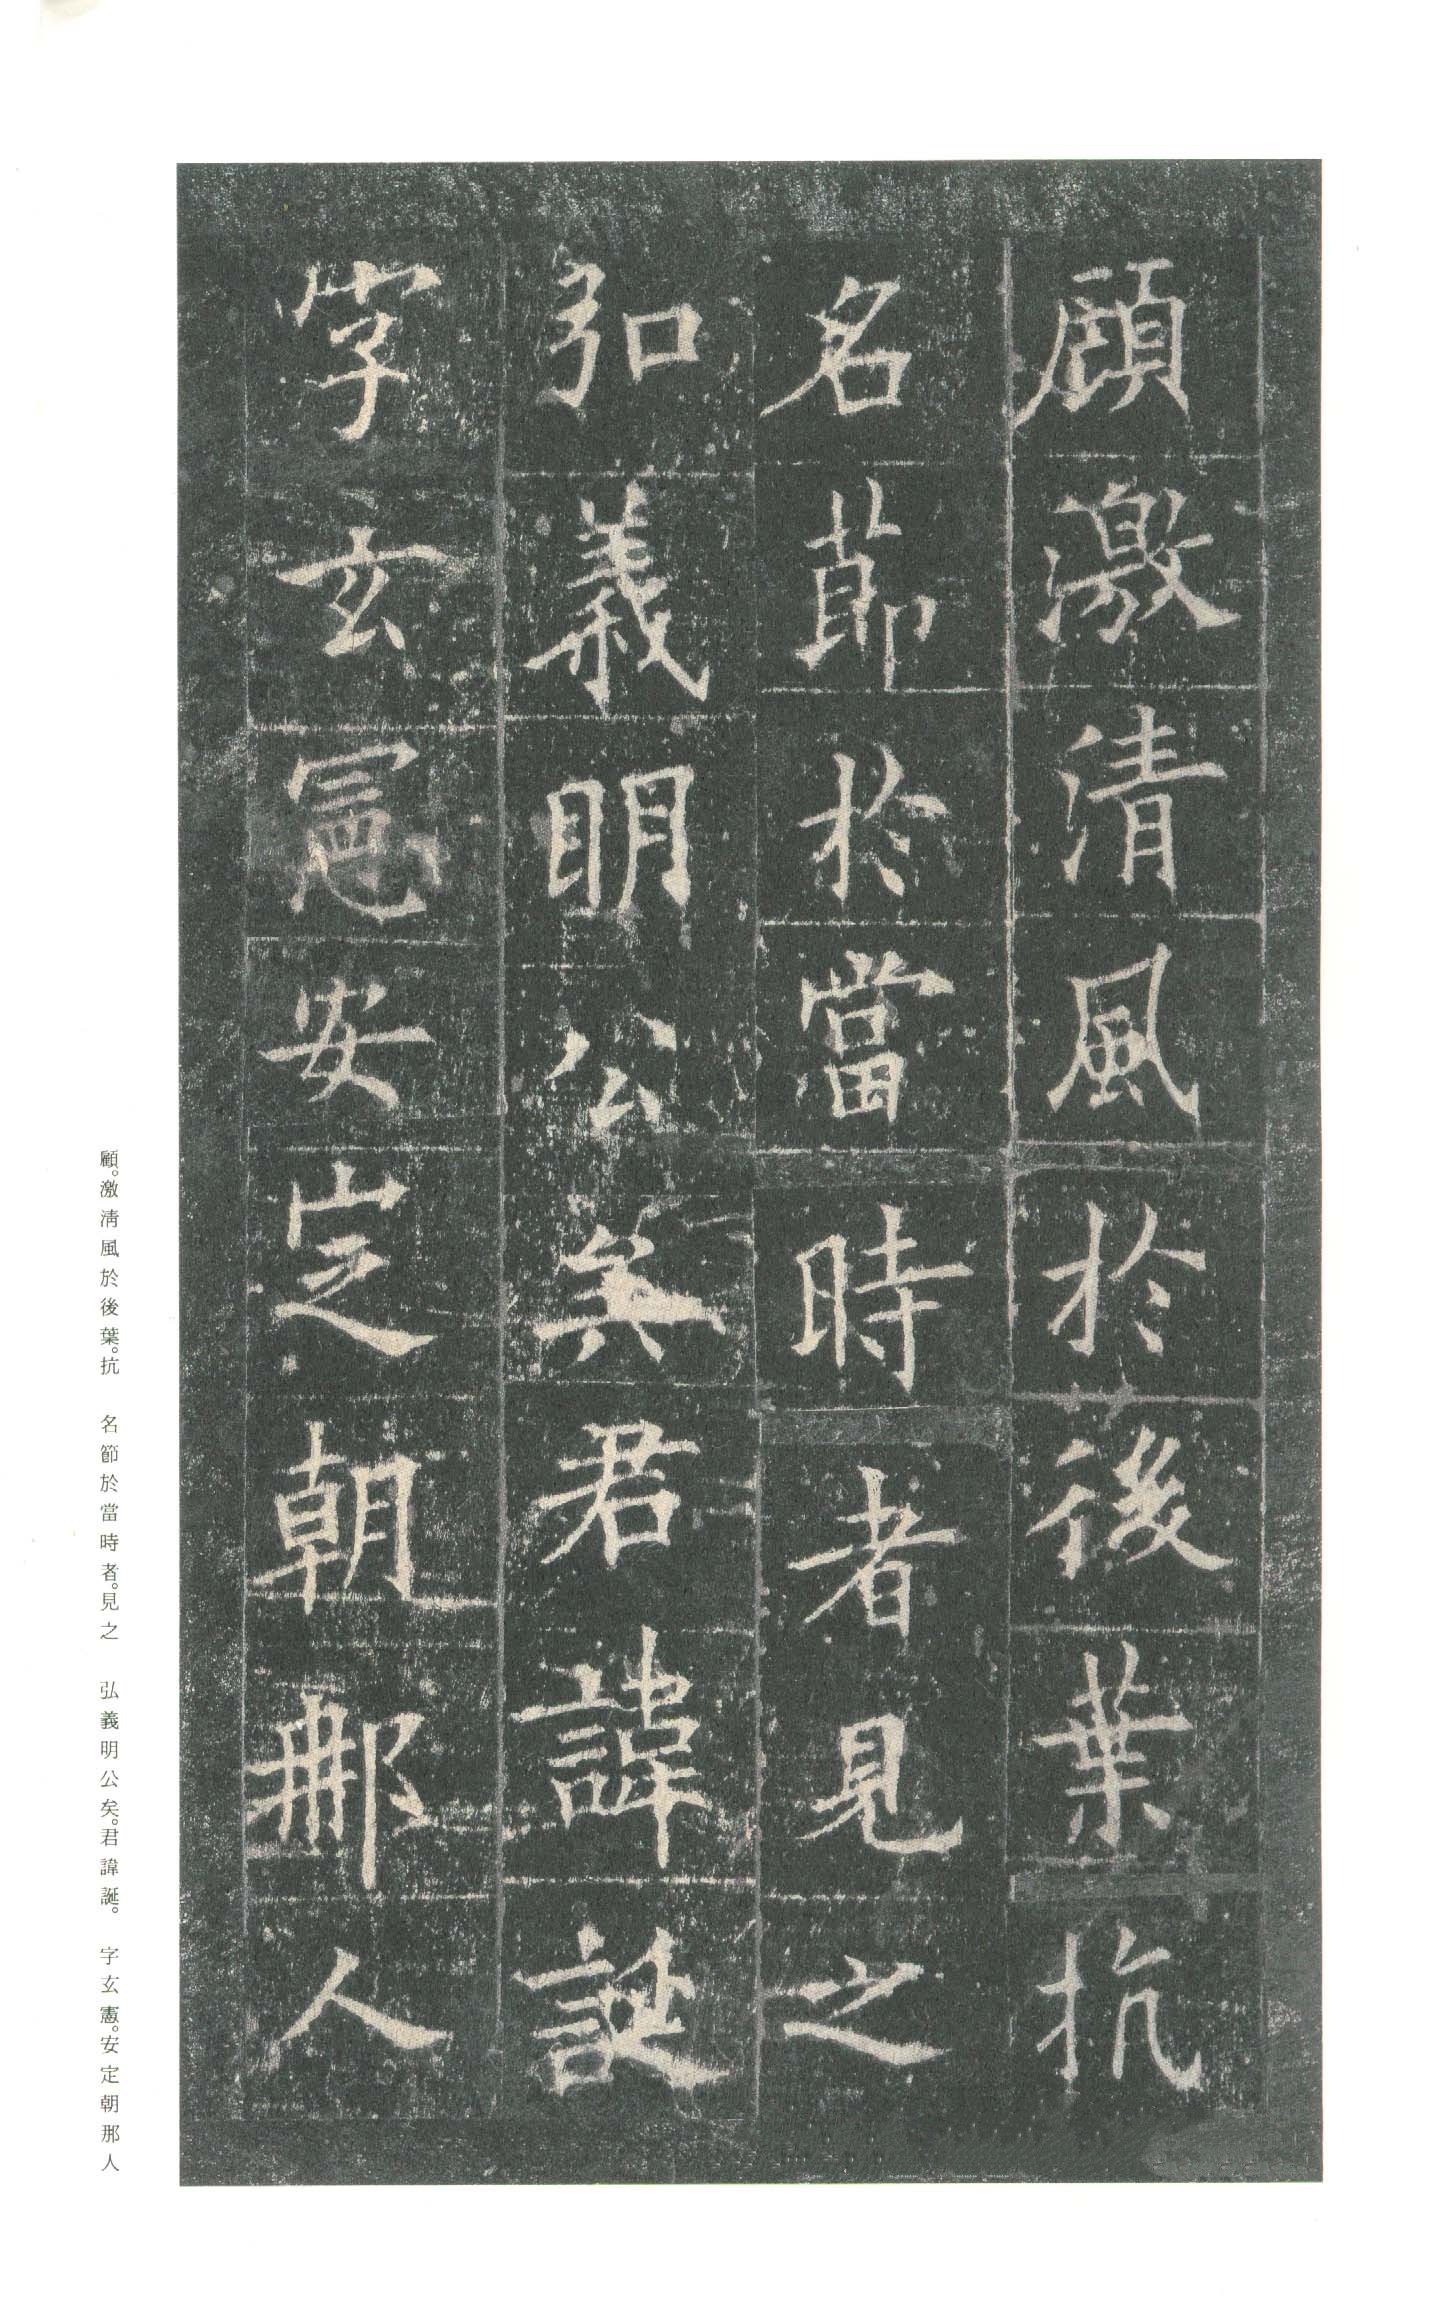 顧激清風於後葉抗
名節於當時者見之
弘義明公矣君諱誕
字玄憲安定朝那人
顧。激清風於後葉。抗　名節於當時者。見之　弘義明公矣。君諱誕。　字玄憲。安定朝那人